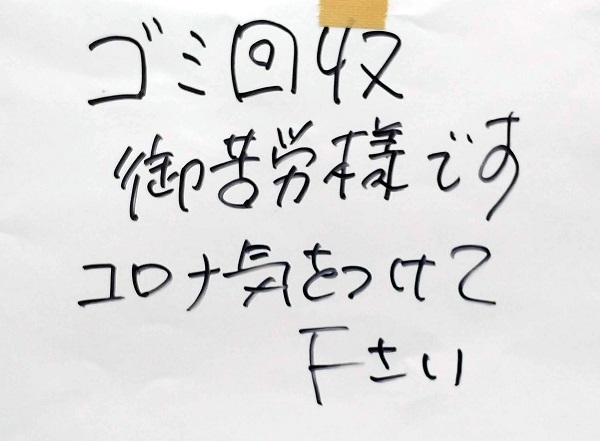 ゴミ回収
御苦労様です
コロナ気をつけて
下さい